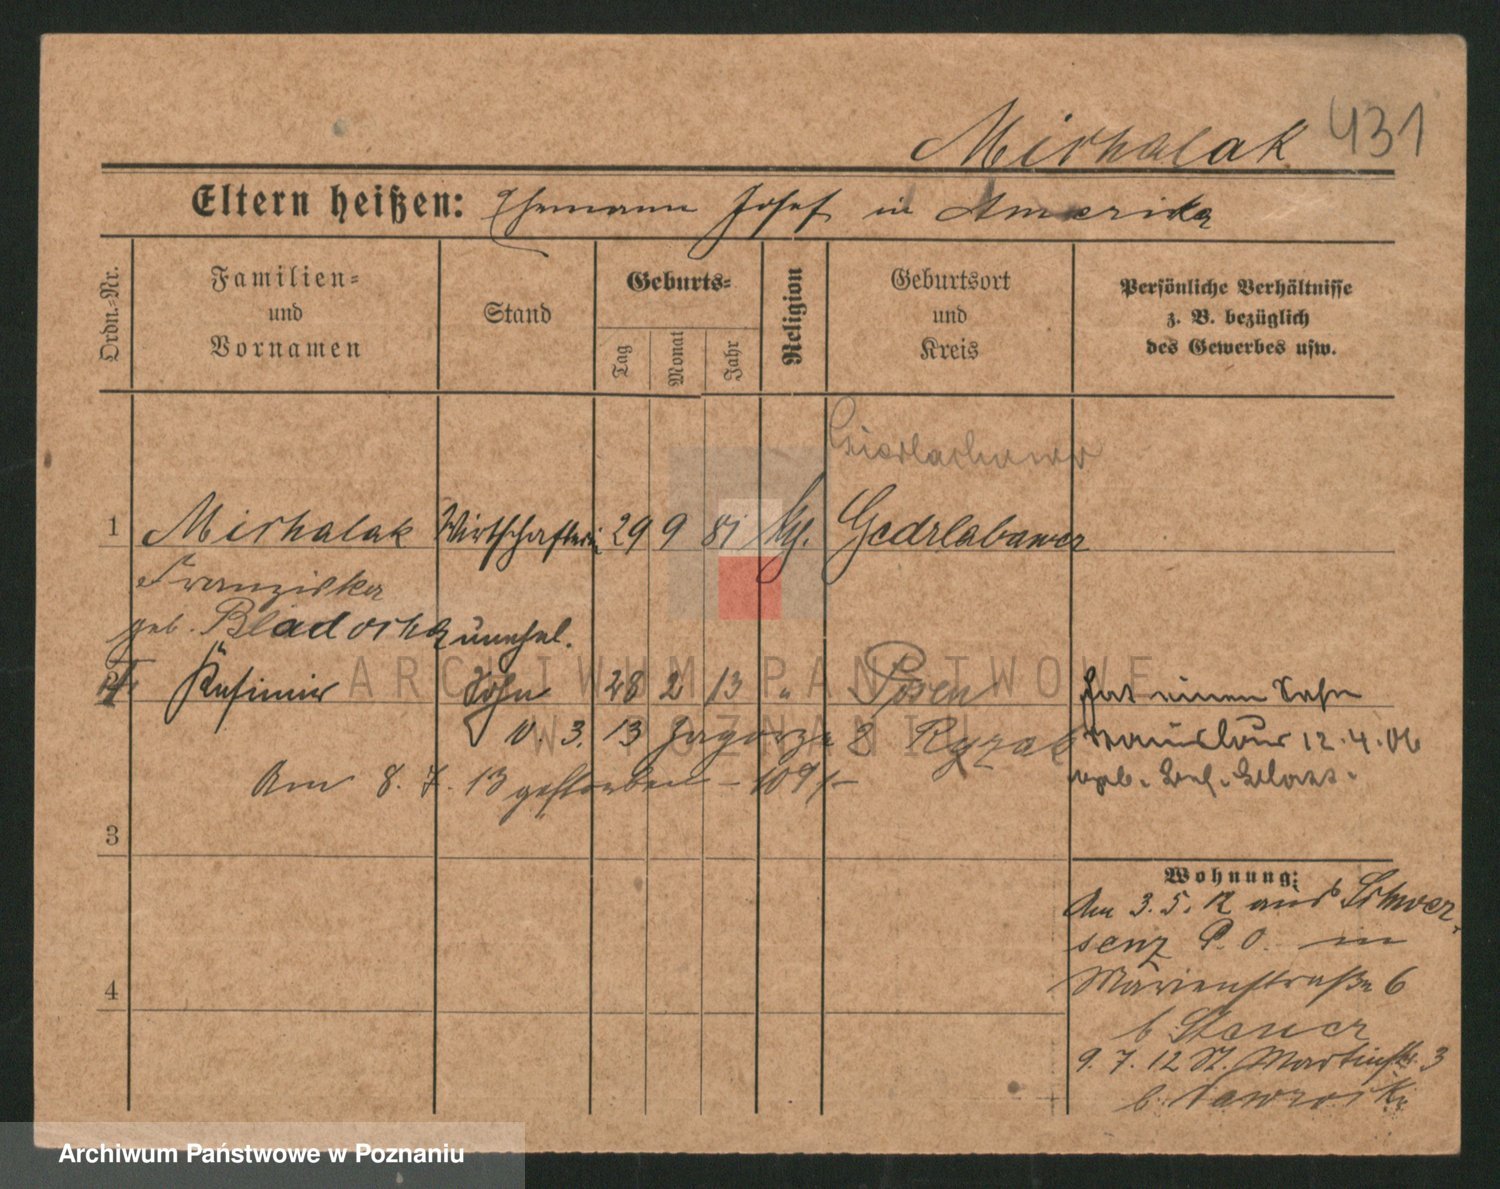 Michalak 431
Eltern heißen: Ehemann Josef in Amerika
Ordn.-Nr.
Familien-
und
Vornamen
Stand
Geburts-
Tag
Monat
Jahr
Religion
Geburtsort
und
Kreis
Persönliche Verhältnisse
z. B. bezüglich
des Gewerbes usw.
1 Michalak Wirtschafterin 29 9 81
Franziska
geb. unehel.
Kasimir Sohn 28 2 13 " Posen hat einen Sohn
10 3. 13 Zagorze 8 12.4.06
Am 8. 7. 13 gestorben
3
Wohnung:
Am 3. 5. 12 aus Schwer-
senz P. O. in
4
Marienstraße 6
b
9. 7. 12 St. Martinstr. 3
b.
ARCHIWUM PAŃSTWOWE
W POZNANIU
Archiwum Państwowe w Poznaniu